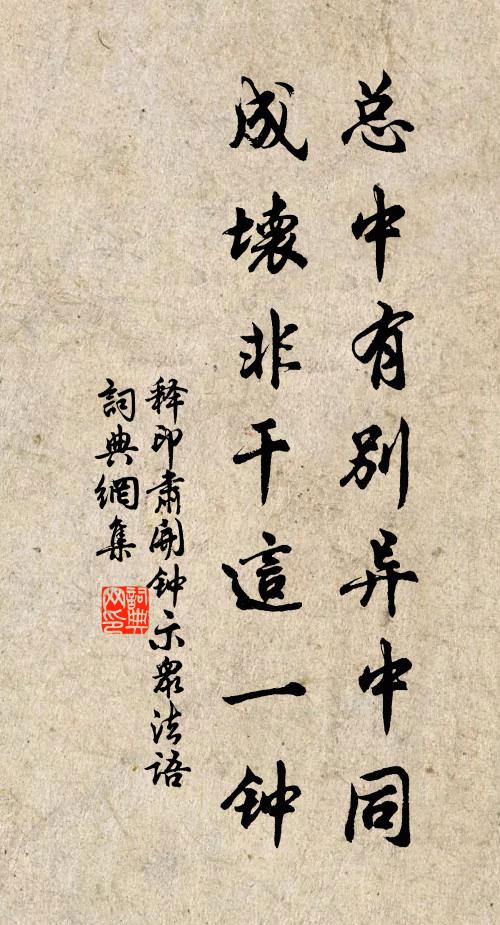 总中有别异中同
成壊非干這一钟
释印肃開钟示眾法语
詞典網集
詞典网印